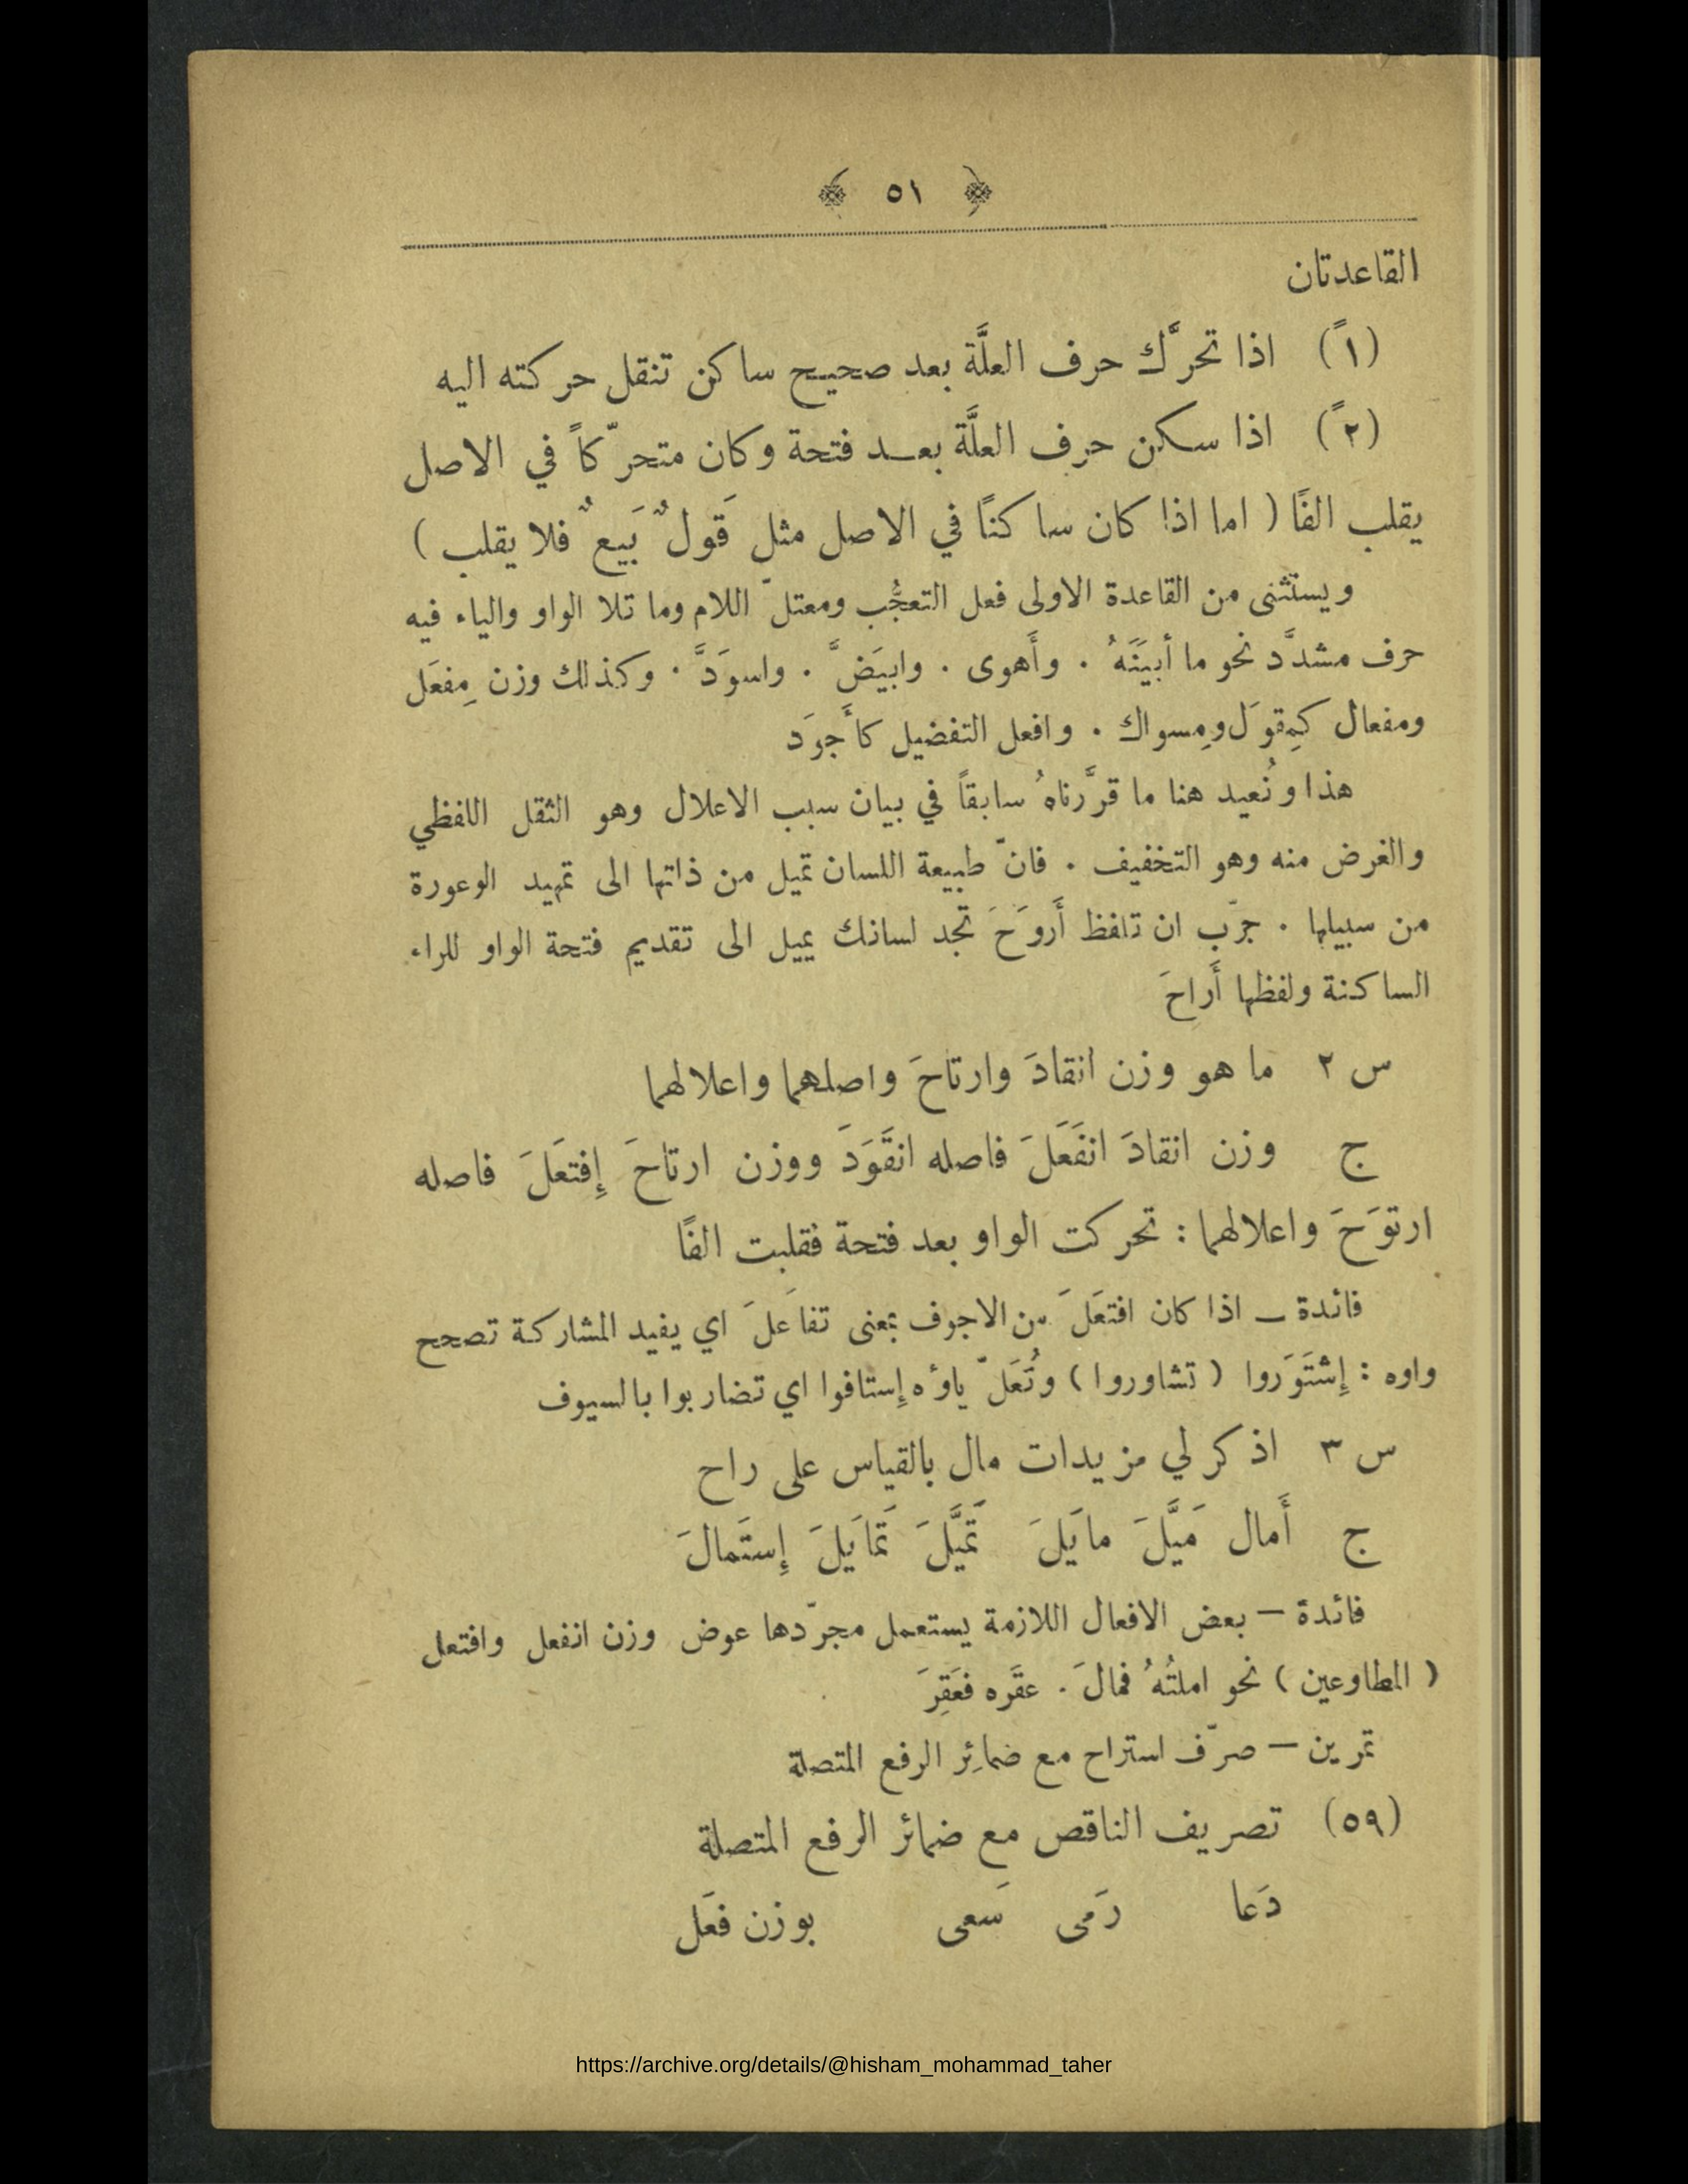 ﴿ ٥١ ﴾
القاعدتان
(١ً) اذا تحرَّك حرف العلَّة بعد صحيح ساكن تنقل حركته اليه
(٢ً) اذا سكن حرف العلَّة بعد فتحة وكان متحرّكاً في الاصل
يقلب الفًا ( اما اذا كان ساكنًا في الاصل مثل قَولٌ بَيعٌ فلا يقلب )
ويستثنى من القاعدة الاولى فعل التعجُّب ومعتلّ اللام وما تلا الواو والياء فيه
حرف مشدَّد نحو ما أبيَنَهُ . وأَهوى . وابيَضَّ . واسوَدَّ . وكذلك وزن مِفعَل
ومفعال كمِقوَل ومِسواك . وافعل التفضيل كأَجوَد
هذا ونُعيد هنا ما قرَّرناهُ سابقاً في بيان سبب الاعلال وهو الثقل اللفظي
والغرض منه وهو التخفيف . فانّ طبيعة اللسان تميل من ذاتها الى تمهيد الوعورة
من سبيلها . جرّب ان تلفظ أَروَحَ تجد لسانك يميل الى تقديم فتحة الواو للراء
الساكنة ولفظها أَراحَ
س ٢ ما هو وزن انقادَ وارتاحَ واصلهما واعلالهما
ج وزن انقادَ انفَعَلَ فاصله انقَوَدَ ووزن ارتاحَ إِفتعَلَ فاصله
ارتوَحَ واعلالهما : تحركت الواو بعد فتحة فقلبت الفًا
فائدة – اذا كان افتعَلَ من الاجوف بمعنى تفاعَلَ اي يفيد المشاركة تصحح
واوه : إِشْتَوَروا ( تشاوروا ) وتُعَلّ ياؤه إِستافوا اي تضاربوا بالسيوف
س ٣ اذكر لي مزيدات مال بالقياس على راح
ج أَمال مَيَّلَ مايَلَ تَمَيَّلَ تَمايَلَ إِستَمالَ
فائدة – بعض الافعال اللازمة يستعمل مجرّدها عوض وزن انفعل وافتعل
( المطاوعين ) نحو املتُهُ فمالَ . عقَره فعَقِرَ
تمرين – صرّف استراح مع ضمائِر الرفع المتصلة
(٥٩) تصريف الناقص مع ضمائر الرفع المتصلة
دَعا رَمى سَعى بوزن فعَل
https://archive.org/details/@hisham_mohammad_taher